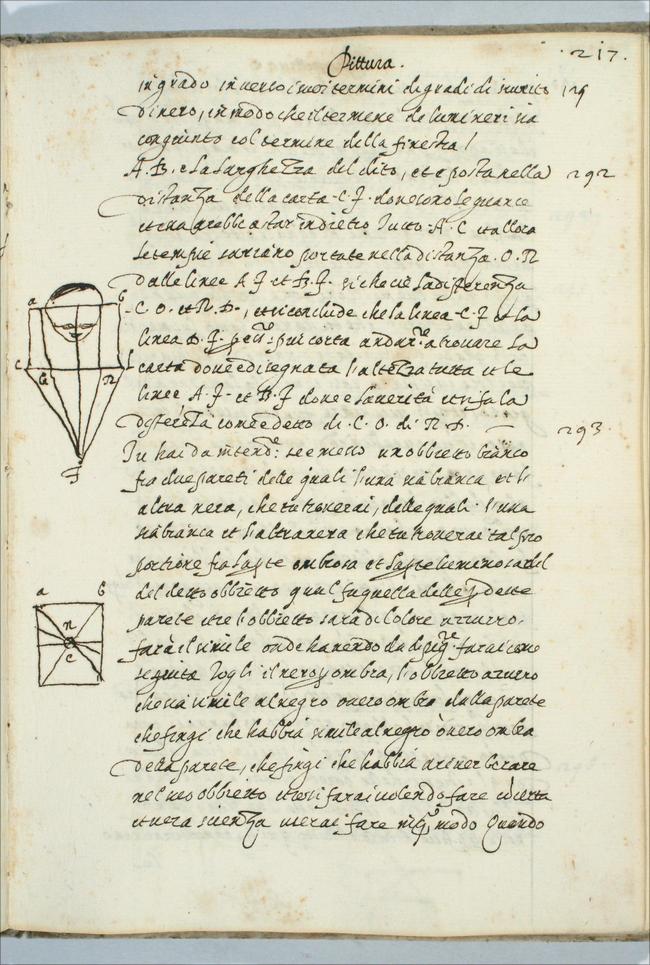 217.
Pittura.
in grado in verso i suoi termini di gradi di
di nero, in modo che il termine de lumi neri sia 129
congiunto col termine della finestra /
A. B. e la larghezza del dito, et e posta nella 292
distanza della carta C. F. dove sono le guance
et una arebbe a star indietro tutto A. C et allora
le tempie sariano portate nella distanza. O. N
dalle linee A F et B. F. si che ci e la diferenza
C. O. et N. D., et si conclude che la linea C. F et la
linea D. F. p esser piu corta a trovare la
carta dove e disegnata l'altezza tutta et le
linee A. F. et B. F dove e la verità et si fa la
diferēza come e detto di. C. O. di N D.
Tu hai da intendere: se e messo un obbietto bianco 293.
fra due pareti delle quali l'una sia bianca et l'
altra nera, che tu troverai, delle quali l'una
sia bianca et l'altra nera che tu troverai tal pro
portione fra la pte ombrosa et la pte luminosa del
del detto obbietto qual fu quella delle p dette
parete et se l'obbietto sara di colore azzurro,
farà il simile onde havendo da farai come
seguita Togli il nero p ombra, l'obbietto azurro
che sia simile al negro overo ombra della parete
che fingi che habbia simile al negro overo ombra
della parete, che fingi che habbia a riverberare
nel tuo obbietto et cosi farai volendo fare cō certa
et vera scienza userai fare in qsto modo Quando
a b
c o n d
f
a b
n
c